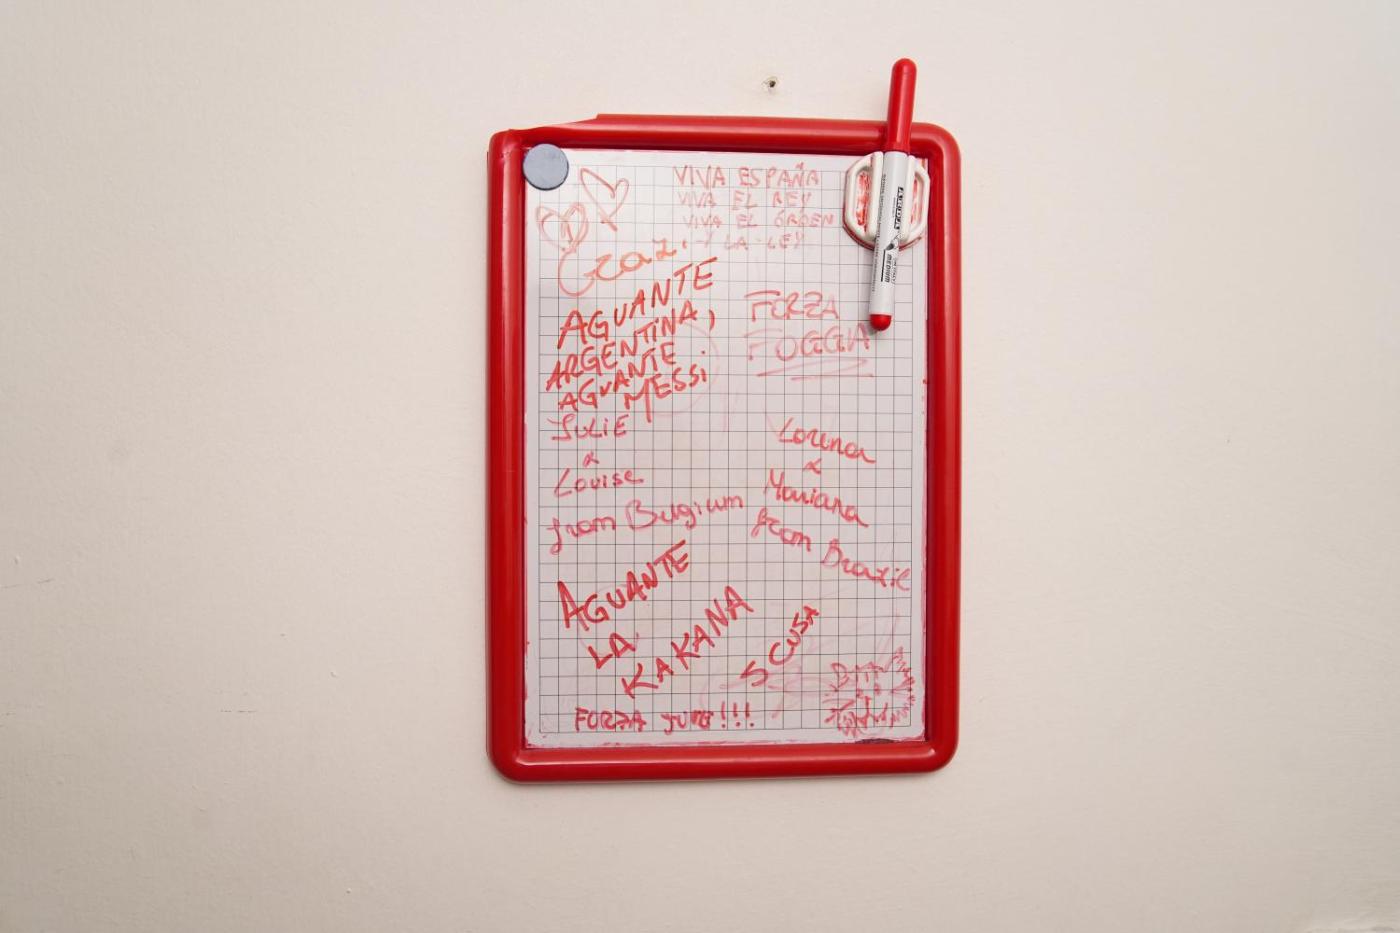 VIVA ESPAÑA
VIVA EL REY
VIVA EL ORDEN
Y LA LEY
Graz.
AGUANTE
ARGENTINA,
AGUANTE
MESSI
FORZA
FOGGIA
JULIE
&
Louise
from Belgium
Lorena
&
Mariana
from Brazil
AGUANTE
LA
KAKANA
SCUSA
FORZA JUVE!!!
MEDIUM